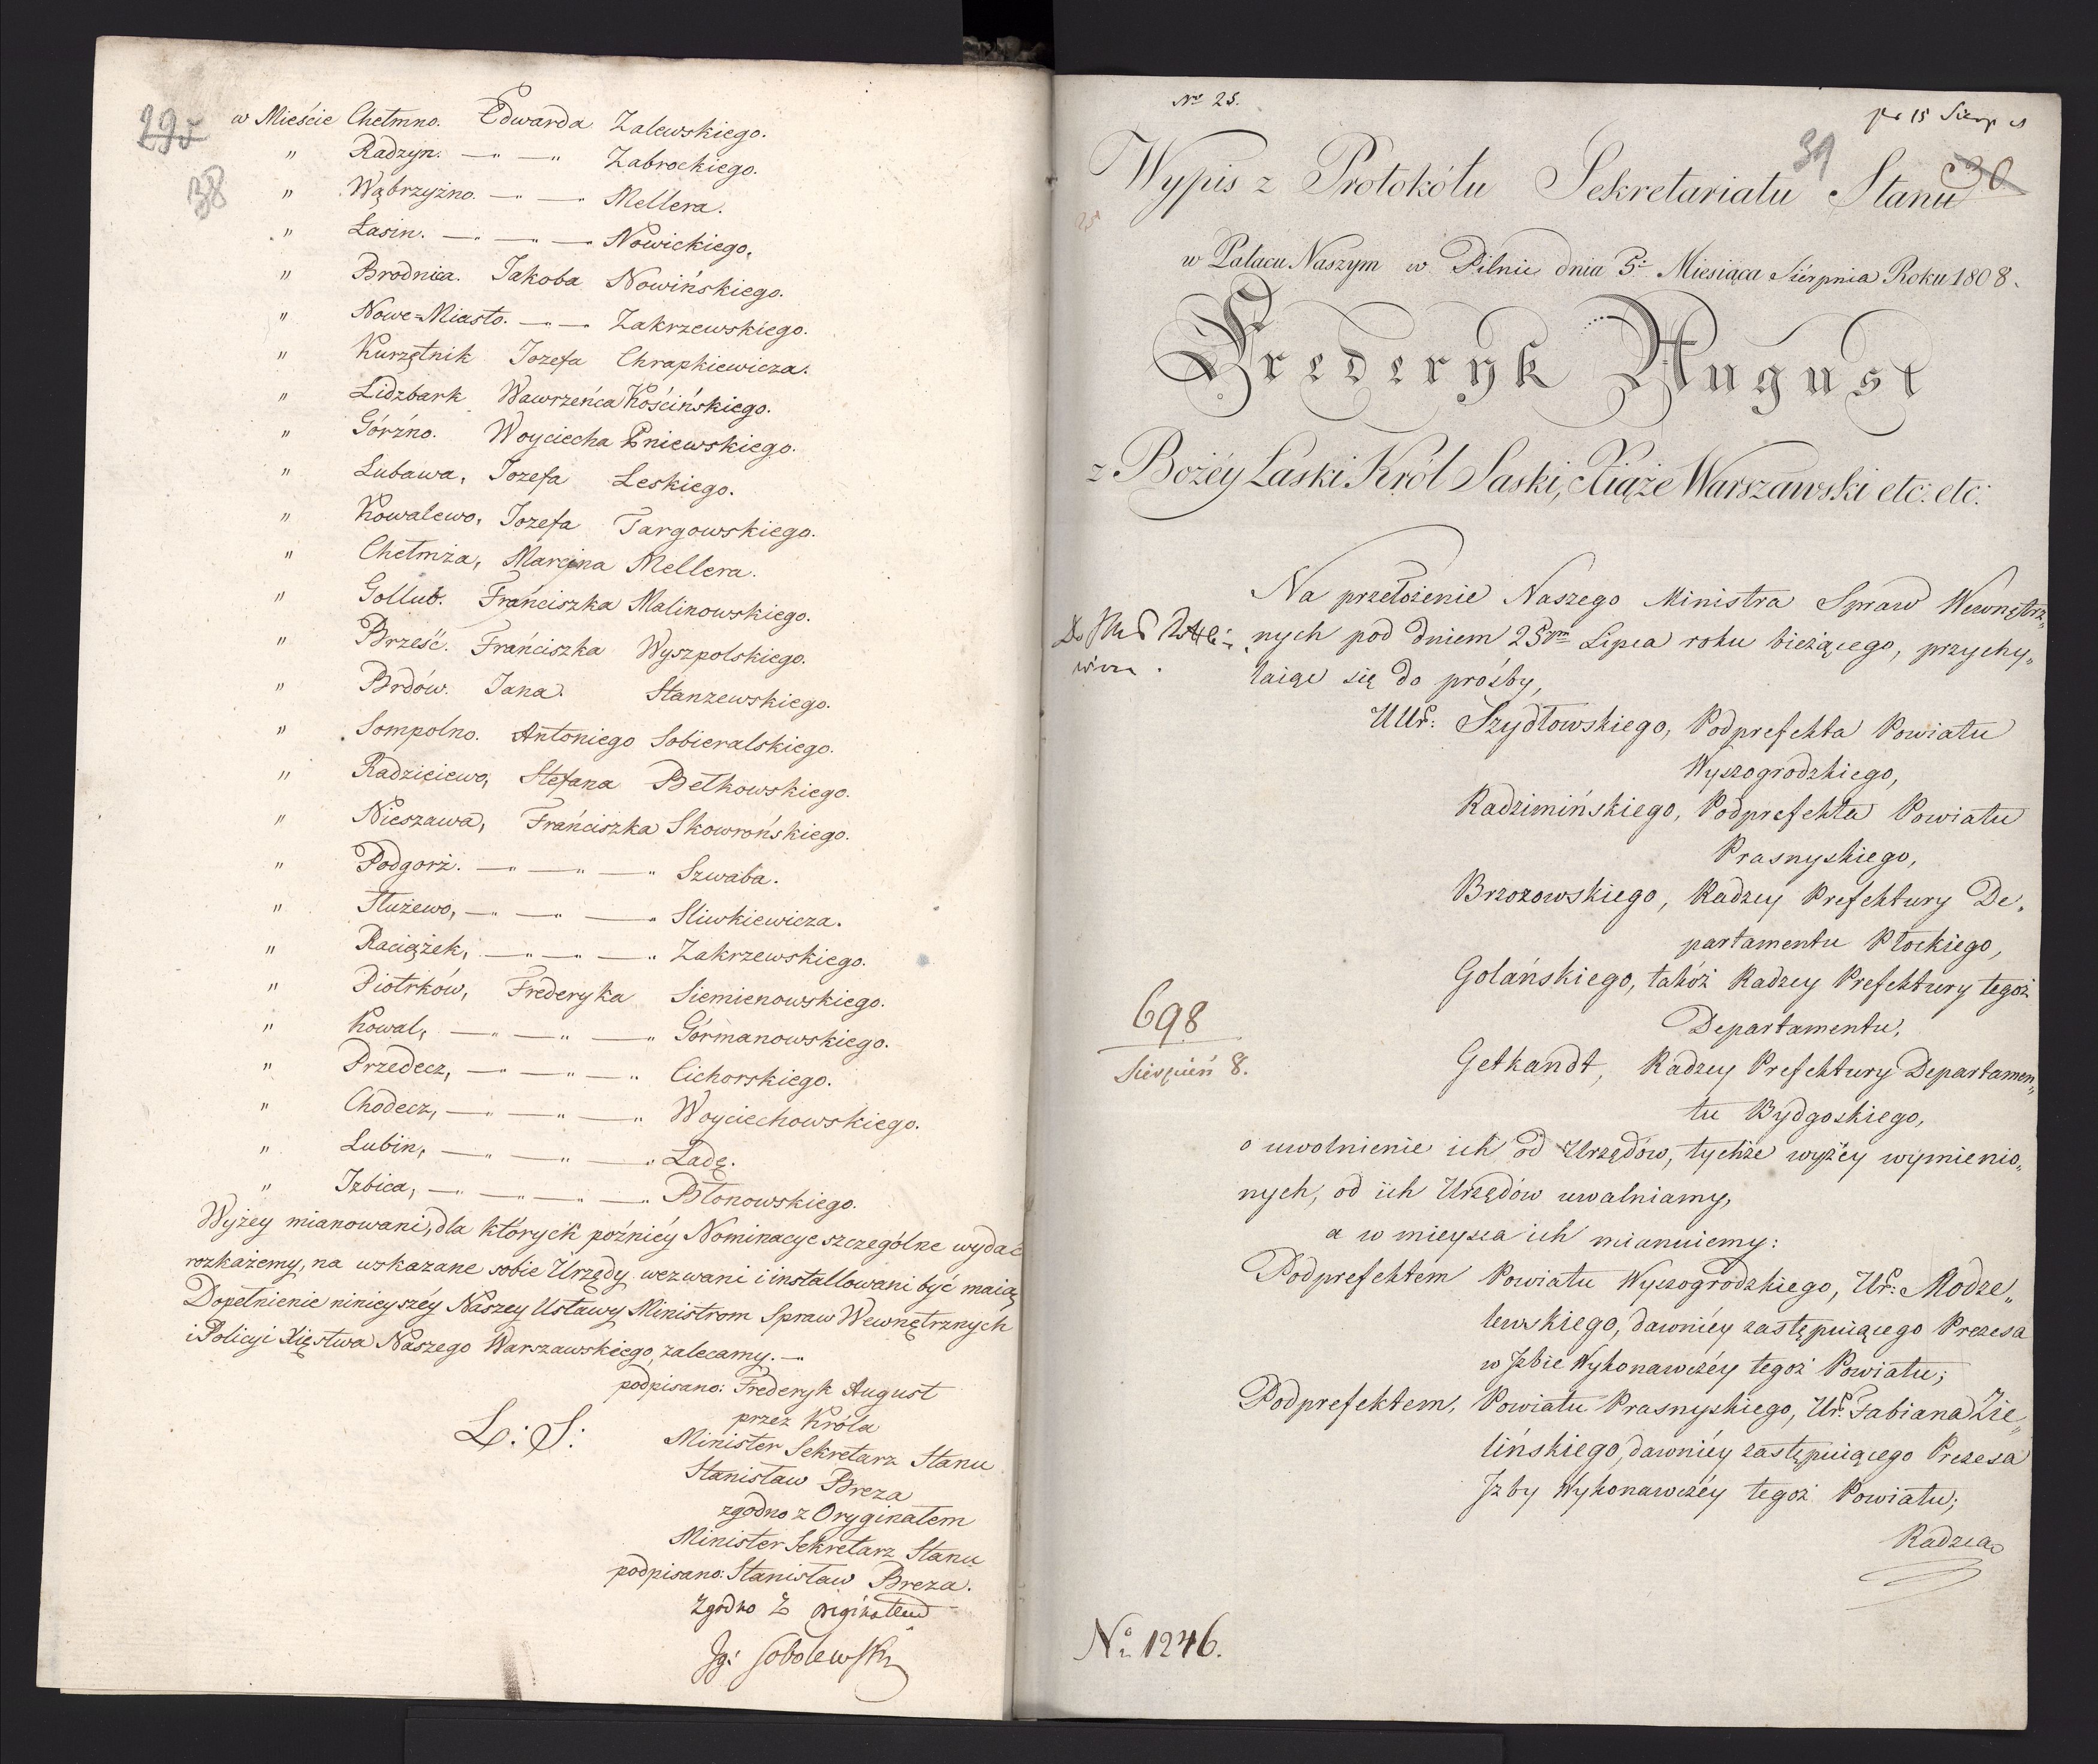 29v
38
w Mieście Chełmno. Edwarda Zalewskiego.
" Radzyn. —"—" Zabrockiego.
" Wąbrzyźno. —"—" Mellera.
" Łasin. —"—"— Nowickiego.
" Brodnica. Jakoba Nowińskiego.
" Nowe=Miasto. —"— Zakrzewskiego.
" Kurzętnik Jozefa Chrapkiewicza.
" Lidzbark Wawrzeńca Kościńskiego.
" Górżno. Woyciecha Pniewskiego.
" Lubawa, Jozefa Łeskiego.
" Kowalewo, Jozefa Targowskiego.
" Chełmża, Marcina Mellera.
" Gollub. Franciszka Malinowskiego.
" Brześć. Franciszka Wyszpolskiego.
" Brdów. Jana Stanzewskiego.
" Sompolno. Antoniego Sobieralskiego.
" Radzieiewo, Stefana Bełkowskiego.
" Nieszawa, Franciszka Skowrońskiego.
" Podgorż. —"—"—" Szwaba.
" Służewo, —"—"—" Sliwkiewicza.
" Raciążek, —"—"—" Zakrzewskiego.
" Piotrków, Frederyka Siemienowskiego.
" Kowal, —"—"—" Górmanowskiego.
" Przedecz, —"—"—" Cichorskiego.
" Chodecz, —"—"—" Woyciechowskiego.
" Lubin, —"—"—" Ladę.
" Izbica, —"—"—"—" Błonowskiego.
Wyżey mianowani, dla których poźniéy Nominacye szczególne wydać
rozkażemy, na wskazane sobie Urzędy wezwani i installowani być maią.
Dopełnienie ninieyszéy Naszey Ustawy Ministrom Spraw Wewnętrznych
i Policyi Xięstwa Naszego Warszawskiego, zalecamy. —
podpisano: Frederyk August
przez Króla
L: S:
Minister Sekretarz Stanu
Stanisław Breza
zgodno z Oryginałem
Minister Sekretarz Stanu
podpisano: Stanisław Breza.
Zgodno z Originałem
Jg: Sobolewski
No 25.
15 Sierp
31
30
25
Wypis z Protokółu Sekretariatu Stanu
w Pałacu Naszym w Pilnie dnia 5. Miesiąca Sierpnia Roku 1808.
Frederyk August
z Bożéy Łaski Król Saski, Xiąże Warszawski etc: etc:
Na przełożenie Naszego Ministra Spraw Wewnętrz„
nych pod dniem 25ym Lipca roku bieżącego, przychy„
laiąc się do prośby,
UUr: Szydłowskiego, Podprefekta Powiatu
Wyszogrodzkiego,
Radzimińskiego, Podprefekta Powiatu
Prasnyskiego,
Brzozowskiego, Radzcy Prefektury De„
partamentu Płockiego,
Golańskiego, takóż Radzcy Prefektury tegoż
Departamentu,
698
Sierpień 8.
Getkandt, Radzcy Prefektury Departamen„
tu Bydgoskiego,
o uwolnienie ich od Urzędów, tychże wyżéy wymienio„
nych, od ich Urzędów uwalniamy,
a w mieysca ich mianuiemy:
Podprefektem Powiatu Wyszogrodzkiego, Ur: Modze„
lewskiego, dawniéy zastępuiącego Prezesa
w Izbie Wykonawczéy tegoż Powiatu;
Podprefektem, Powiatu Prasnyskiego, Ur: Fabiana Zie„
lińskiego, dawniéy zastępuiącego Prezesa
Izby Wykonawczéy tegoż Powiatu;
Radzca
No 1246.